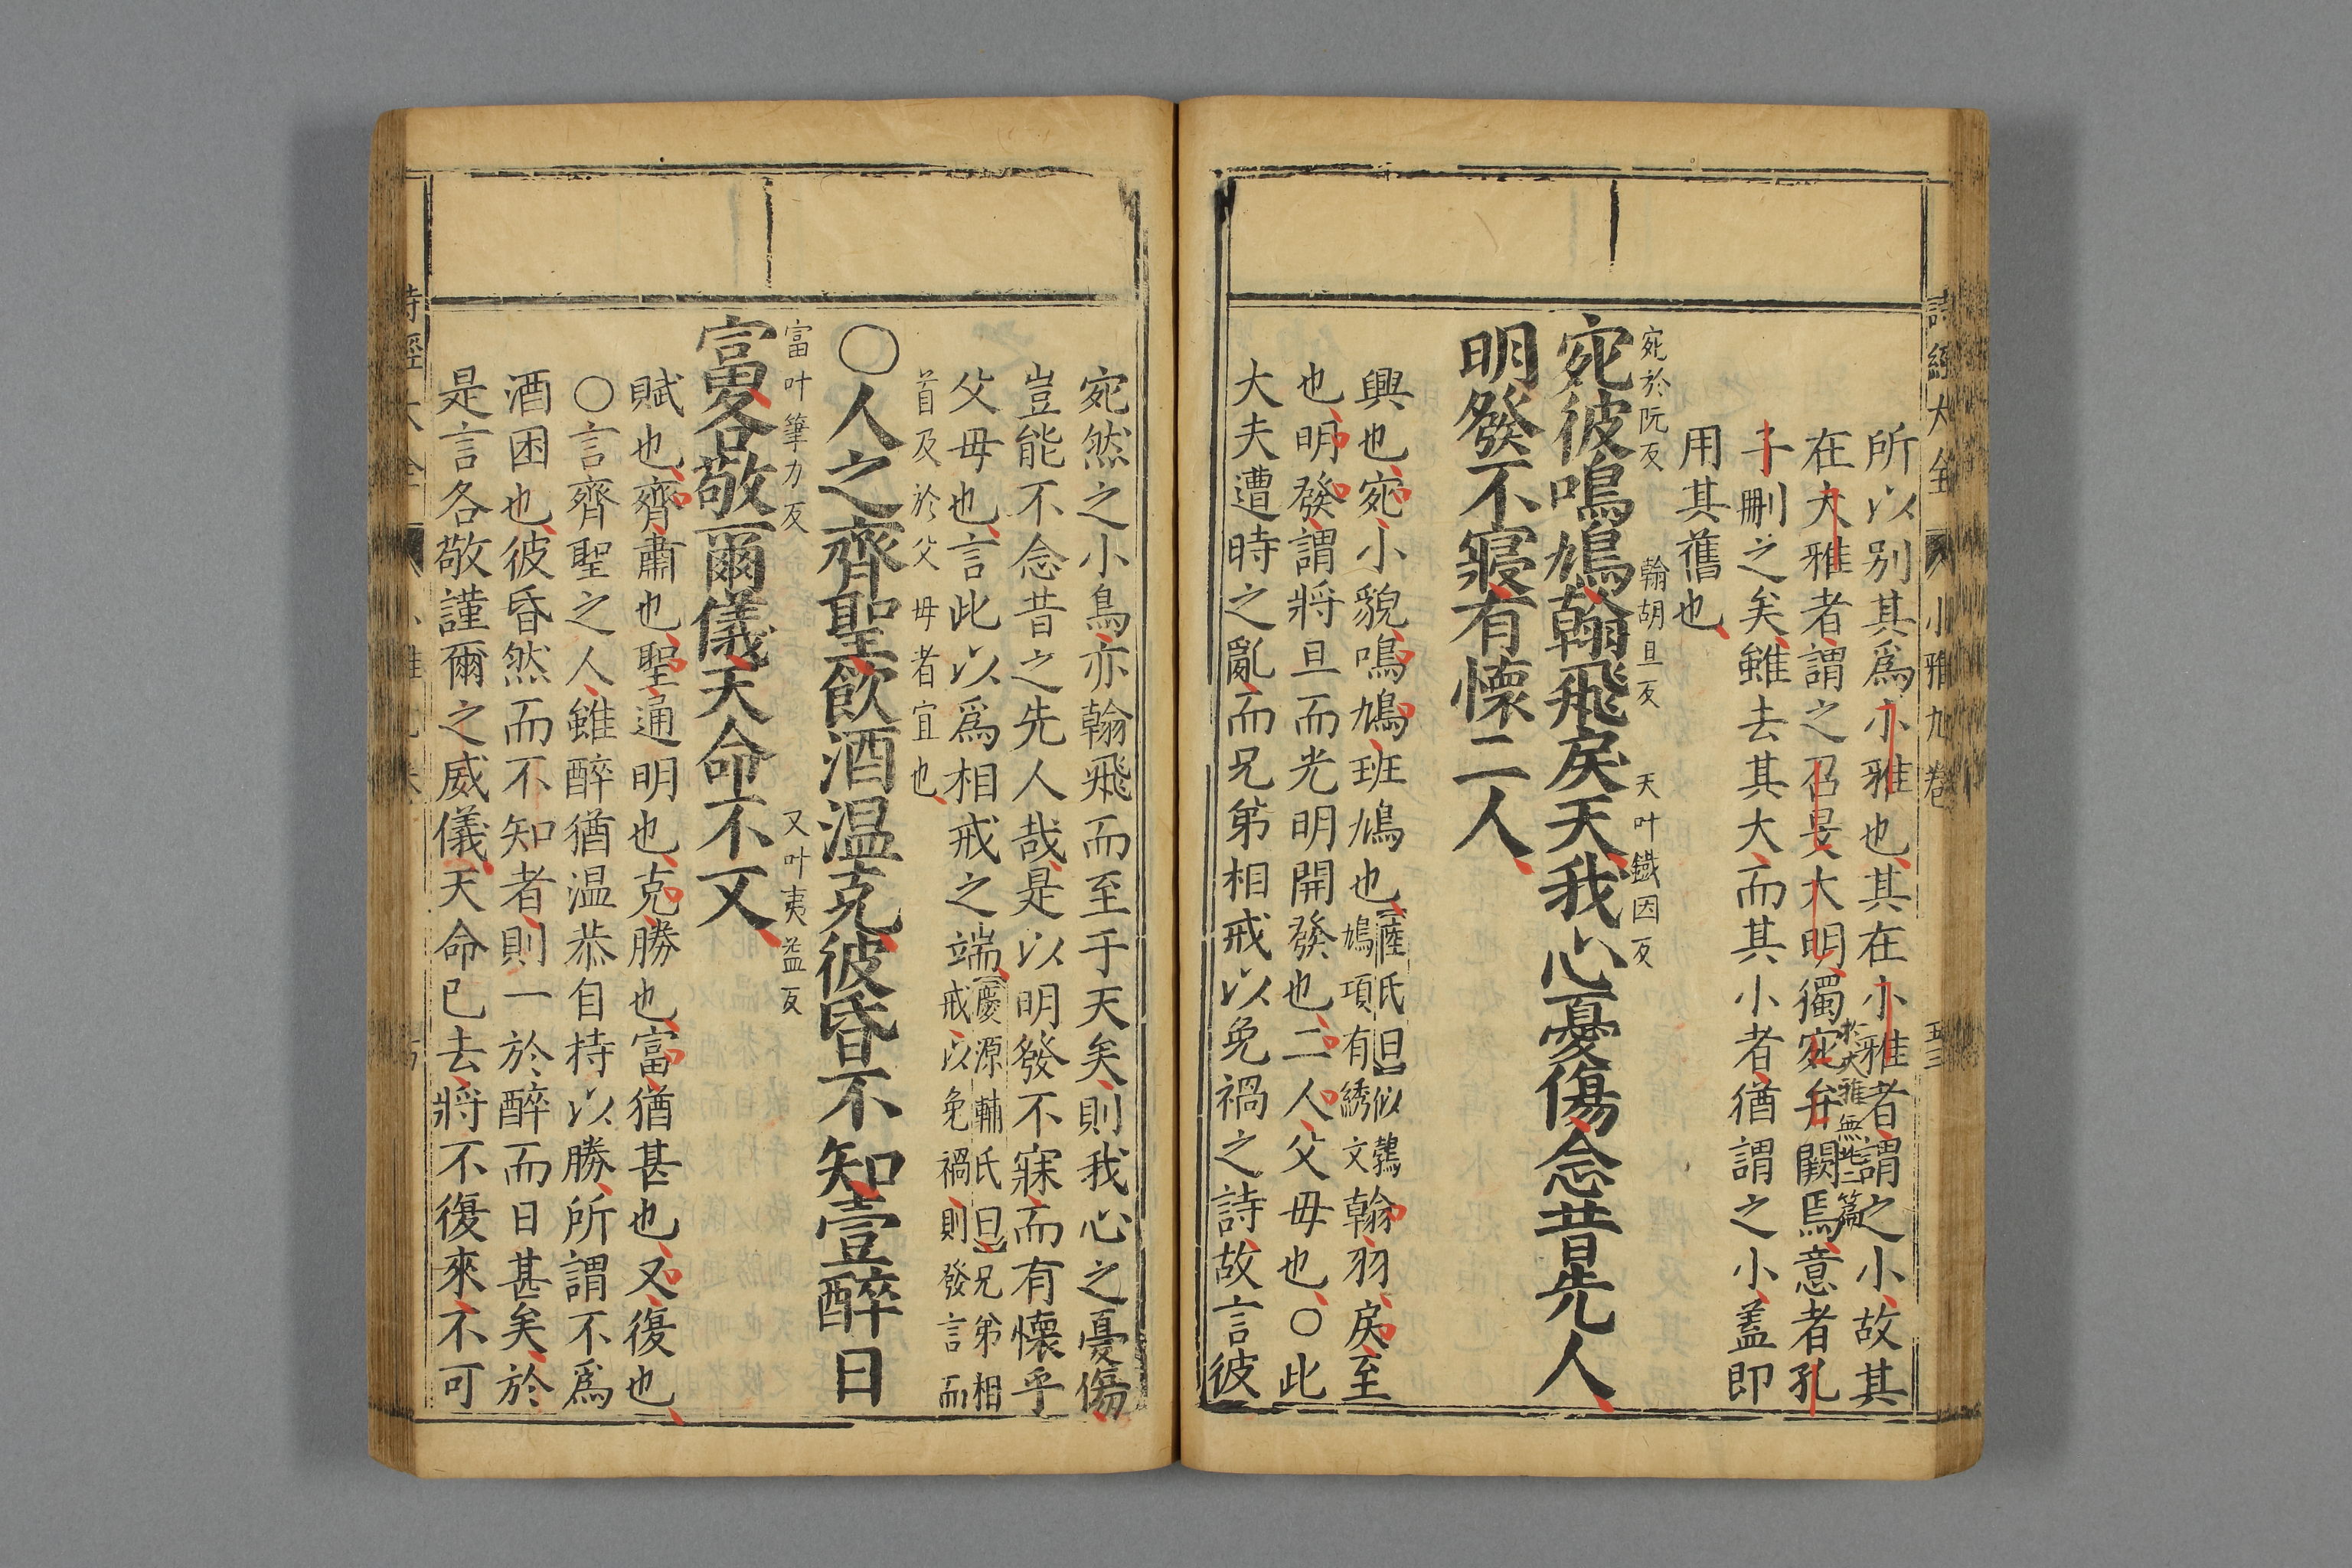 詩經大全 小雅九卷 五三
所以别其爲小雅也其在小雅者謂之小故其
在大雅者謂之召旻大明獨宛弁闕焉意者孔
於大雅無此二篇
子刪之矣雖去其大而其小者猶謂之小盖即
用其舊也
宛於阮反 翰胡旦反 天叶鐵因反
宛彼鳴鳩翰飛戾天我心憂傷念昔先人
明發不寢有懷二人
興也宛小貌鳴鳩班鳩也【陸氏曰】似鶉
鳩項有綉文翰羽戾至
也明發謂將旦而光明開發也二人父母也○此
大夫遭時之亂而兄弟相戒以免禍之詩故言彼
宛然之小鳥亦翰飛而至于天矣則我心之憂傷
豈能不念昔之先人哉是以明發不寐而有懷乎
父母也言此以爲相戒之端【慶源輔氏曰】兄弟相
戒以免禍則發言而
首及於父母者宜也
○人之齊聖飲酒温克彼昏不知壹醉日
富叶筆力反 又叶夷益反
富各敬爾儀天命不又
賦也齊肅也聖通明也克勝也富猶甚也又復也
○言齊聖之人雖醉猶温恭自持以勝所謂不爲
酒困也彼昏然而不知者則一於醉而日甚矣於
是言各敬謹爾之威儀天命已去將不復來不可
詩經大全